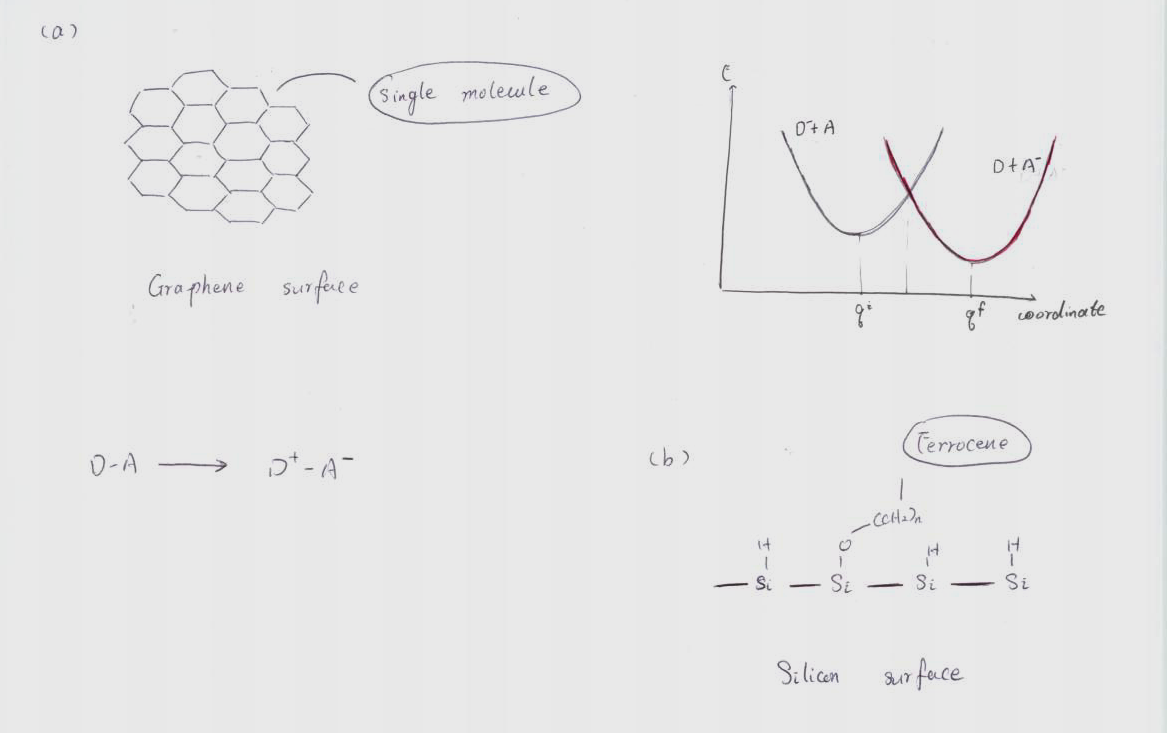 (a)
Single molecule
Graphene surface
E
D⁻+A
D+A⁻
qⁱ
qᶠ
coordinate
D-A ⟶ D⁺-A⁻
(b)
Ferrocene
(CH₂)n
H O H H
Si — Si — Si — Si
Silicon surface